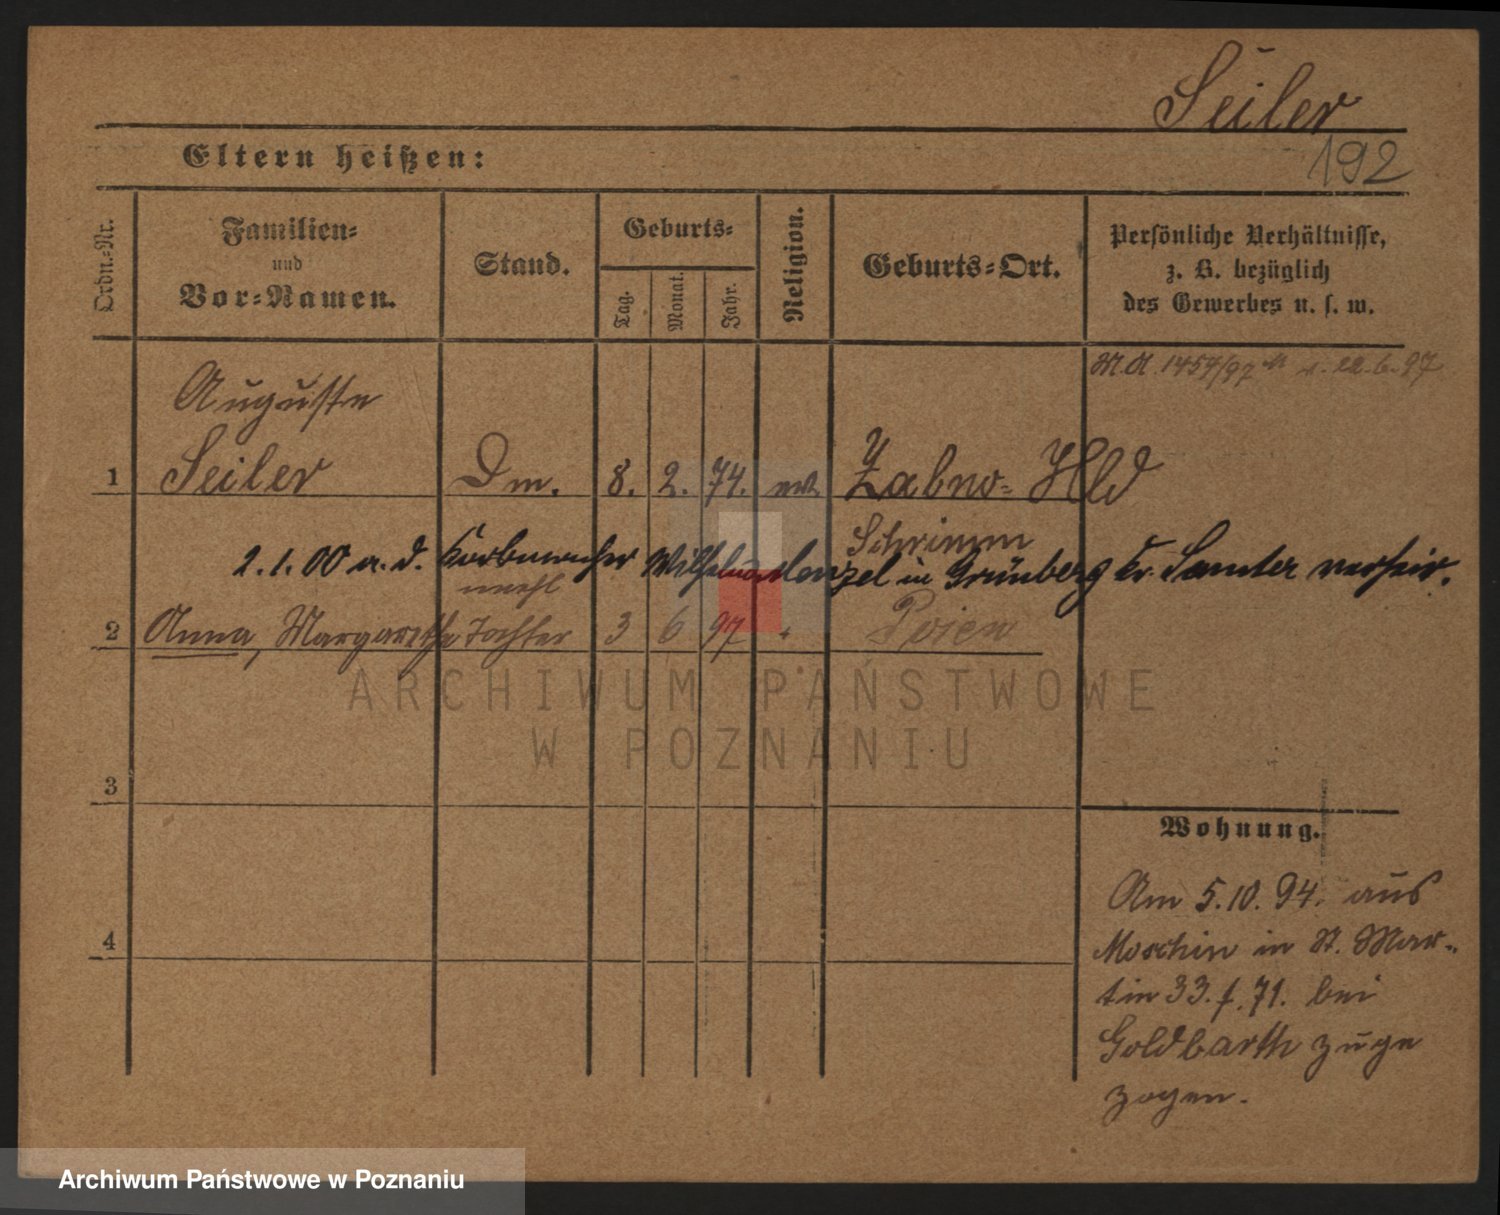 Seiler
Eltern heißen:
192
Ordn.-Nr.
Familien-
und
Vor-Namen.
Stand.
Geburts-
Tag.
Monat.
Jahr.
Religion.
Geburts-Ort.
Persönliche Verhältnisse,
z. B. bezüglich
des Gewerbes u. s. w.
1457/97 22.6.97
Auguste
1 Seiler Dm. 8. 2. 74. ev. Zabno- Hld
Schrimm
2.1.00 a. d. Korbmacher Wilhelm Menzel in Grünberg Kr. Samter verheir.
unehl
2 Anna, Margarethe Tochter 3 6 97 " Posen
ARCHIWUM PAŃSTWOWE
W POZNANIU
3
Wohnung.
4
Am 5.10.94. aus
Moschin in St. Mar-
tin 33. f. 71. bei
Goldbarth zuge
zogen.
Archiwum Państwowe w Poznaniu